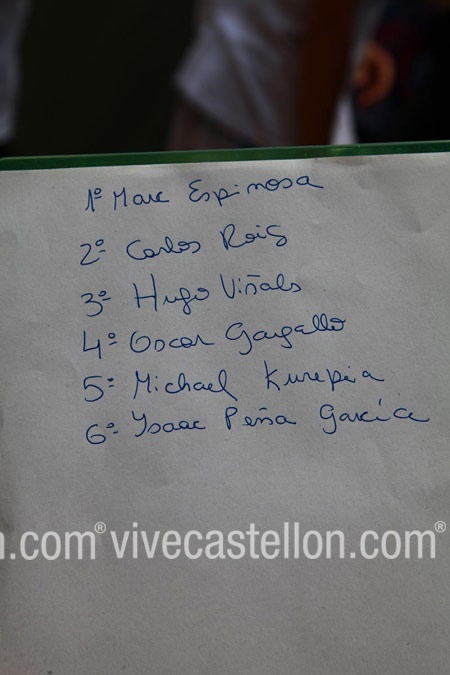 1º Marc Espinosa
2º Carlos Roig
3º Hugo Viñals
4º Oscar Gargallo
5º Michael Kurepia
6º Isaac Peña García
n.com® vivecastellon.com®